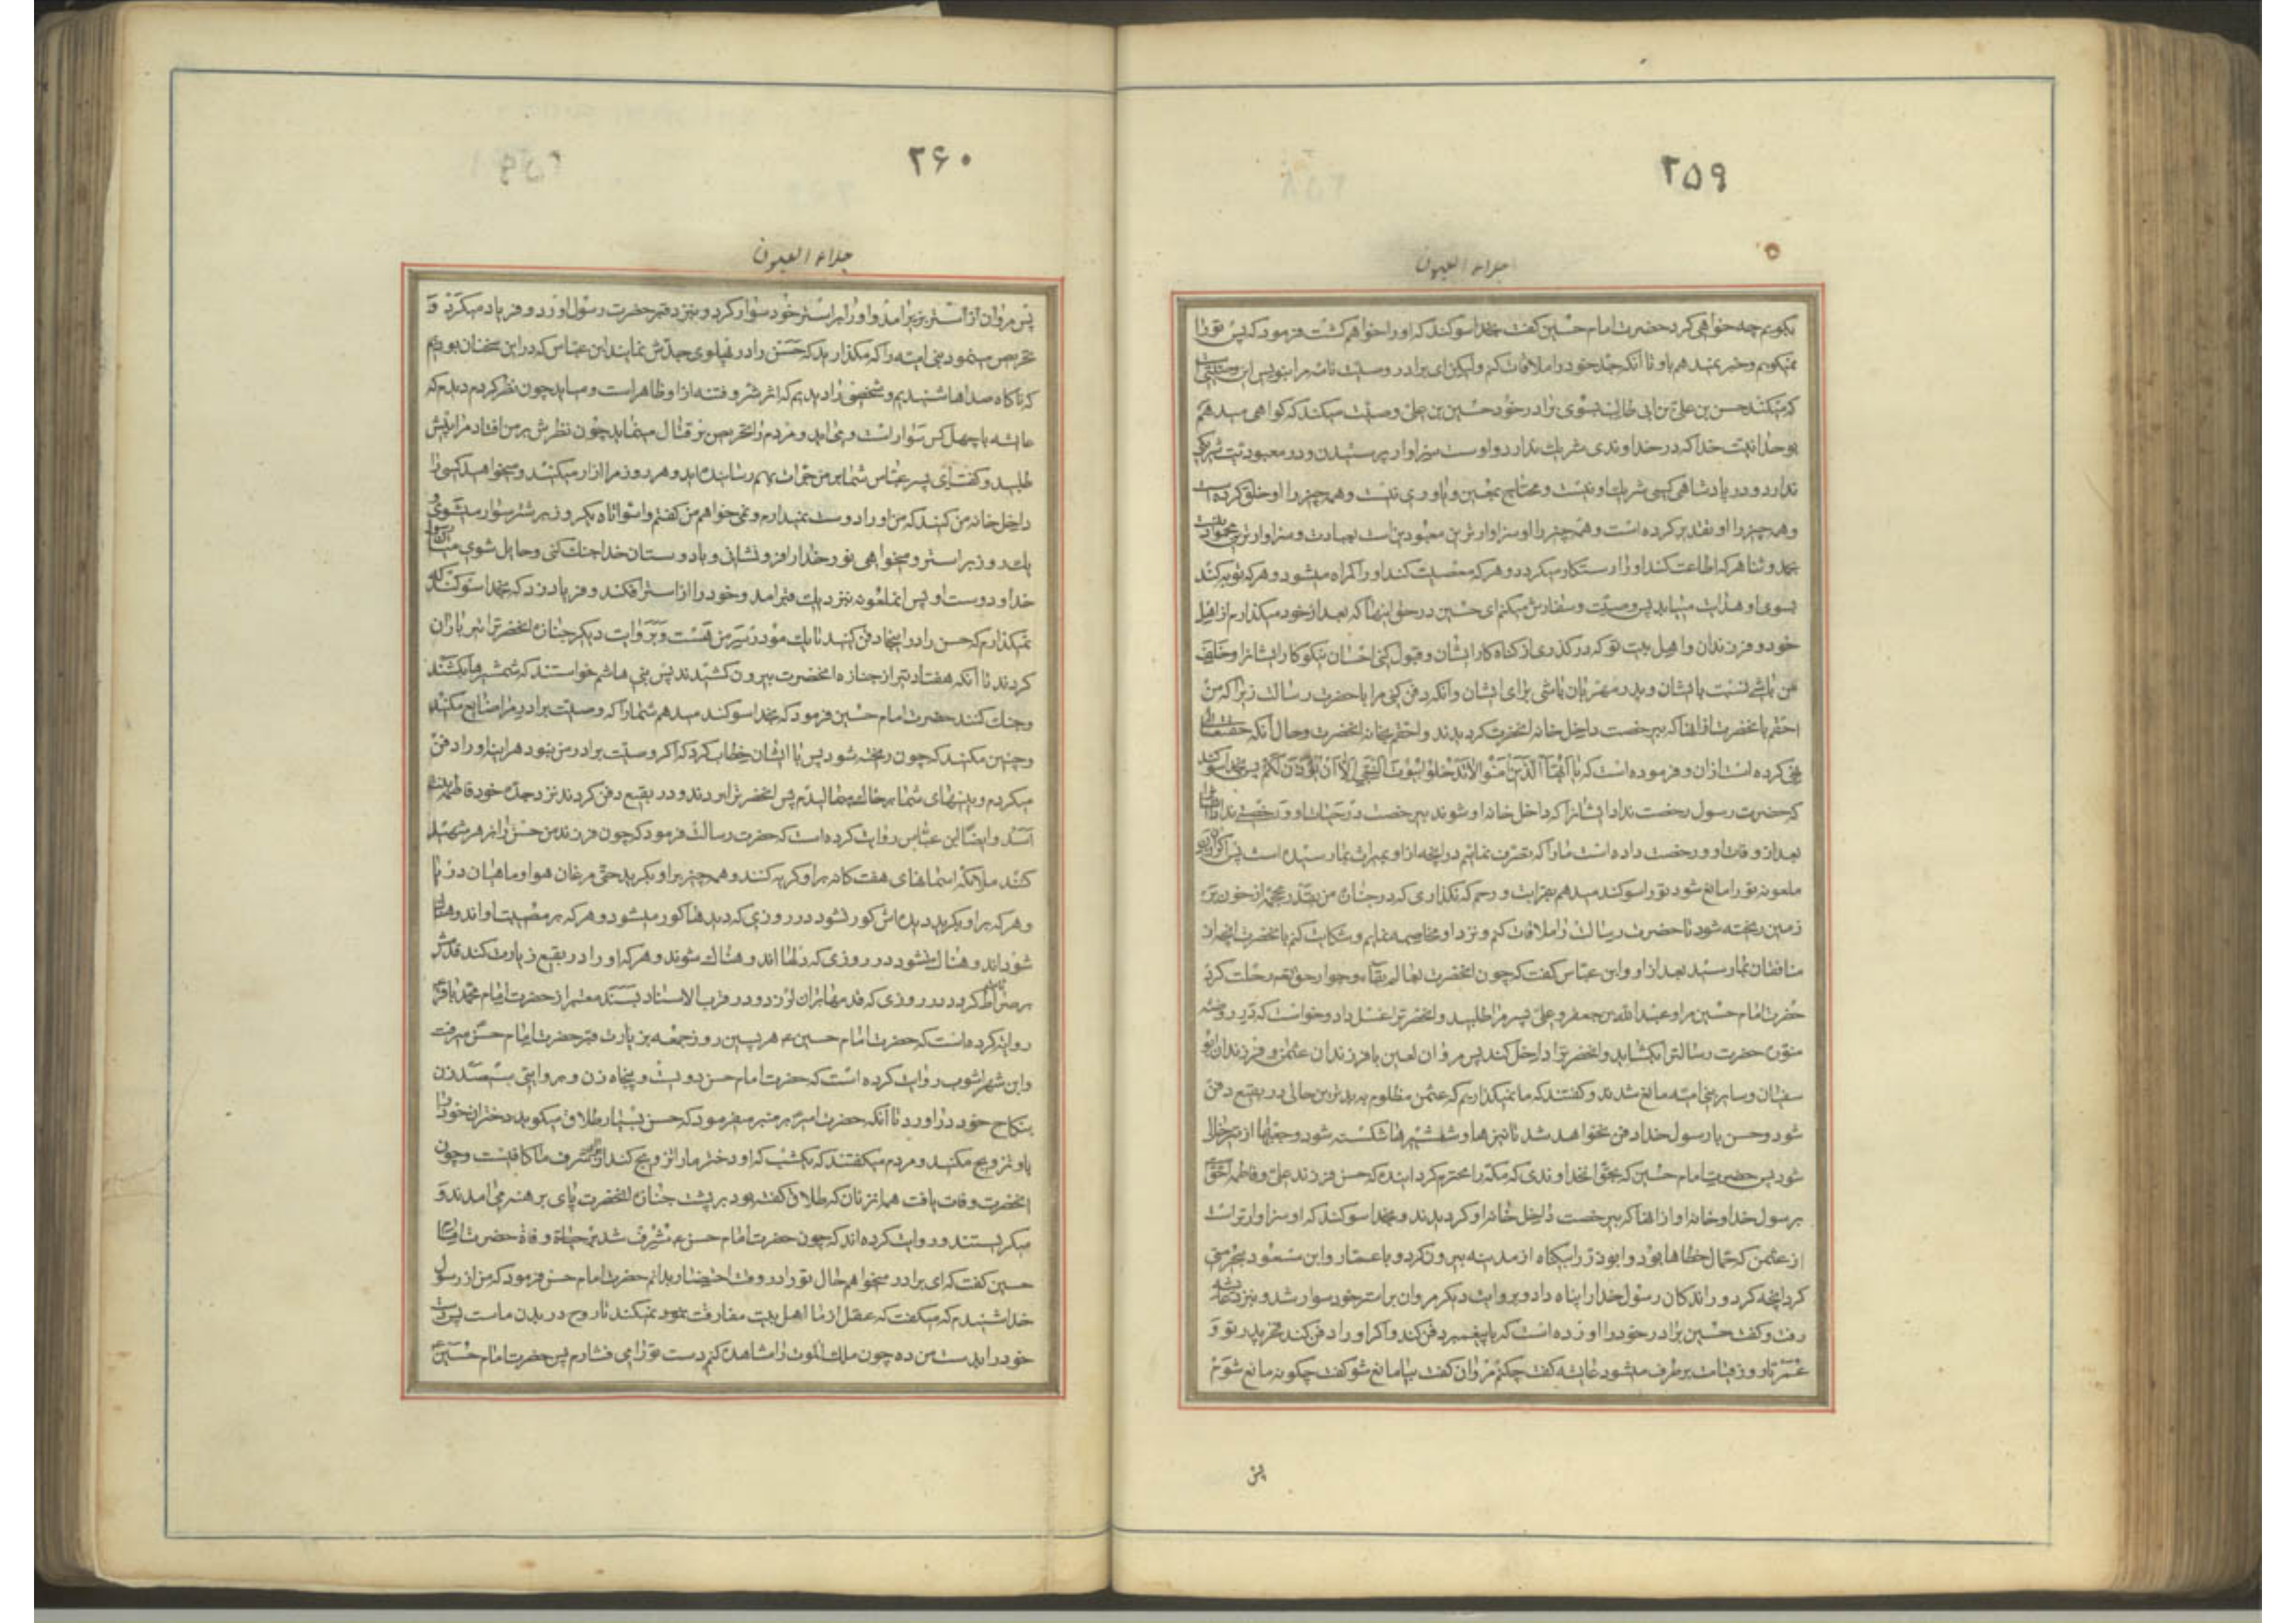 ۲۵۹
جلاء العیون
بکویم چه خواهی کرد حضرت امام حسین کفت بخدا سوکند که او را خواهم کشت فرمود که پس تو را
نمیکویم و خبر نمیدهم باو تا آنکه جدّ خود را ملاقات کنم ولیکن ای برادر وصیّت نامه مرا بنویس این وصیتی است
که میکند حسن بن علیّ بن ابی طالب بسوی برادر خود حسین بن علیّ وصیّت میکند که کواهی میدهم
بوحدانیت خدا که در خداوندی شریك ندارد و اوست سزاوار پرستیدن و در معبودیّت شریك
ندارد و در پادشاهی کسی شریك او نیست و محتاج بمعین و یاوری نیست و همه چیز را او خلق کرده است
و همه چیز را او تقدیر کرده است و همه چیز را او سزاوارترین معبودین است بعبادت و سزاوارترین محمودین است
بحمد و ثنا هر که اطاعت کند او را رستکار میکردد و هر که معصیت کند او را کمراه میشود و هر که توبه کند
بسوی او هدایت مییابد پس وصیّت و سفارش میکنم ای حسین در حق اینها که بعد از خود میکذارم از اهل
خود و فرزندان و اهل بیت تو که در کذری از کناه کار ایشان و قبول کنی احسان نیکو کار ایشانرا و خلیفه
من باشی نسبت بایشان و پدر مهربان باشی برای ایشان و آنکه دفن کنی مرا با حضرت رسالت زیرا که من
احقم بانحضرت از انها که بیرخصت داخل خانه انحضرت کردیدند و احقم بخانه انحضرت و حال آنکه حقتعالی
نهی کرده است ازان و فرموده است که یا ایّها الّذین آمنوا لا تدخلوا بیوت النّبیّ الّا ان یؤذن لکم پس بخدا سوکند
که حضرت رسول رخصت نداد ایشانرا که داخل خانه او شوند بیرخصت در حیات او و رخصتی بایشان نداد
بعد از وفات او و رخصت داده است ما را که تصرّف نمائیم در انچه از او بمیراث بما رسیده است پس اکر ان
ملعونه تو را مانع شود تو را سوکند میدهم بقرابت و رحم که نکذاری که در جنازه من بقدر محجمه از خون بر
زمین ریخته شود تا حضرت رسالت را ملاقات کنم و نزد او مخاصمه نمایم و شکایت کنم بانحضرت انچه از
منافقان بما رسید بعد از او و ابن عبّاس کفت که چون انحضرت بعالم بقاء و جوار حقتعالی رحلت کرد
حضرت امام حسین مرا و عبد الله بن جعفر و علیّ پسر مرا طلبید و انحضرترا غسل داد و خواست که در روضه
منوّره حضرت رسالترا بکشاید و انحضرترا داخل کند پس مروان لعین با فرزندان عثمن و فرزندان ابو
سفیان و سایر بنی امیّه مانع شدند و کفتند که ما نمیکذاریم که عثمن مظلوم به بدترین حالی در بقیع دفن
شود و حسن با رسول خدا دفن نخواهد شد تا نیزها و شمشیرها شکسته شود و جعبها از تیر خالی
شود پس حضرت امام حسین کفت بحقّ انخداوندی که مکّه را محترم کردانیده که حسن فرزند علیّ و فاطمه احقّ
برسول خدا و خانه او از انها که بیرخصت داخل خانه او کردیدند و بخدا سوکند که او سزاوارتر است
از عثمن که حمّال خطاها بود و ابوذر را بیکناه از مدینه بیرون کرد و با عمّار و ابن مسعود بیحرمتی
کرد انچه کرد و راندکان رسول خدا را پناه داد و بروایت دیکر مروان بر استر خود سوار شد و بنزد عایشه
رفت و کفت حسین برادر خود را اورده است که با پیغمبر دفن کند و اکر او را دفن کند فخر پدر تو و
عمر تا روز قیامت برطرف میشود عایشه کفت چکنم مروان کفت بیا مانع شو کفت چکونه مانع شوم
پس
۲۶۰
جلاء العیون
پس مروان از استر بزیر آمد و او را بر استر خود سوار کرد و بنزد قبر حضرت رسول اورد و فریاد میکرد و
تحریص مینمود بنی امیّه را که مکذارید که حسن را در پهلوی جدّش نمایند ابن عبّاس که در این سخنان بودیم
که ناکاه صداها شنیدیم و شخصی را دیدیم که اثر شر و فتنه از او ظاهر است و میاید چون نظر کردم دیدم که
عایشه با چهل کس سوار است و میاید و مردم را تحریص بر قتال مینماید چون نظرش بر من افتاد مرا پیش
طلبید و کفت ای پسر عبّاس شما بر من جرات بهم رسانیده‌اید و هر روز مرا ازار میکنید و میخواهید کسی را
داخل خانه من کنید که من او را دوست نمیدارم و نمیخواهم من کفتم واسواتاه یکروز بر شتر سوار میشوی و
یك روز بر استر و میخواهی نور خدا را فرونشانی و با دوستان خدا جنك کنی و حایل شوی میان رسول
خدا و دوست او پس انملعونه بنزدیك قبر امد و خود را از استر افکند و فریاد زد که بخدا سوکند که
نمیکذارم که حسن را در اینجا دفن کنید تا یك مو در سر من هست و بروایت دیکر جنازه انحضرترا تیر باران
کردند تا آنکه هفتاد تیر از جنازه انحضرت بیرون کشیدند پس بنی هاشم خواستند که شمشیرها بکشند
و جنك کنند حضرت امام حسین فرمود که بخدا سوکند میدهم شما را که وصیّت برادر مرا ضایع مکنید
و چنین مکنید که خون ریخته شود پس با ایشان خطاب کرد که اکر وصیّت برادر من نبود هراینه او را دفن
میکردم و بینیهای شما بر خاك میمالیدم پس انحضرترا بردند و در بقیع دفن کردند نزد جدّه خود فاطمه بنت
اسد و ایضا ابن عبّاس روایت کرده است که حضرت رسالت فرمود که چون فرزند من حسن را بزهر شهید
کنند ملائکه اسمانهای هفت کانه بر او کریه کنند و همه چیز بر او بکرید حتّی مرغان هوا و ماهیان دریا
و هر که بر او بکرید دیده‌اش کور نشود در روزی که دیدها کور میشود و هر که بر مصیبت او اندوهناك
شود اندوهناك نشود در روزی که دلها اندوهناك شوند و هر که او را در بقیع زیارت کند قدمش
بر صراط ثابت کردد در روزی که قدمها بران لرزد و در قرب الاسناد بسند معتبر از حضرت امام محمّد باقر
روایت کرده است که حضرت امام حسین ع هر پسین روز جمعه بزیارت قبر حضرت امام حسن میرفت
و ابن شهراشوب روایت کرده است که حضرت امام حسن دویست و پنجاه زن و بروایتی سیصد زن
بنکاح خود دراورد تا آنکه حضرت امیر بر منبر میفرمود که حسن بسیار طلاق میکوید دختران خود را
باو تزویج مکنید و مردم میکفتند که یکشب که او دختر ما را تزویج کند از برای شرف ما کافیست و چون
انحضرت وفات یافت همه زنان که طلاق کفته بود در پشت جنازه انحضرت پای برهنه میامدند و
میکریستند و روایت کرده‌اند که چون حضرت امام حسن ع مشرف شد بر وفاة حضرت امام
حسین کفت که ای برادر میخواهم حال تو را در وقت احتضار بدانم حضرت امام حسن فرمود که من از رسول
خدا شنیدم که میکفت که عقل از ما اهل بیت مفارقت نمیکند تا روح در بدن ماست پس دست
خود را بدست من ده چون ملك الموت را مشاهده کنم دست تو را می فشارم پس حضرت امام حسین